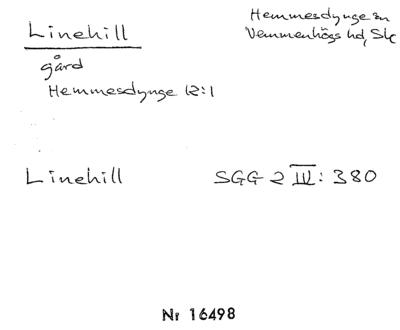 Linehill
Hemmesdynge sn
Vemmenhögs hd, Sk
gård
Hemmesdynge 12:1
Linehill SGG 2 III: 380
Nr 16498